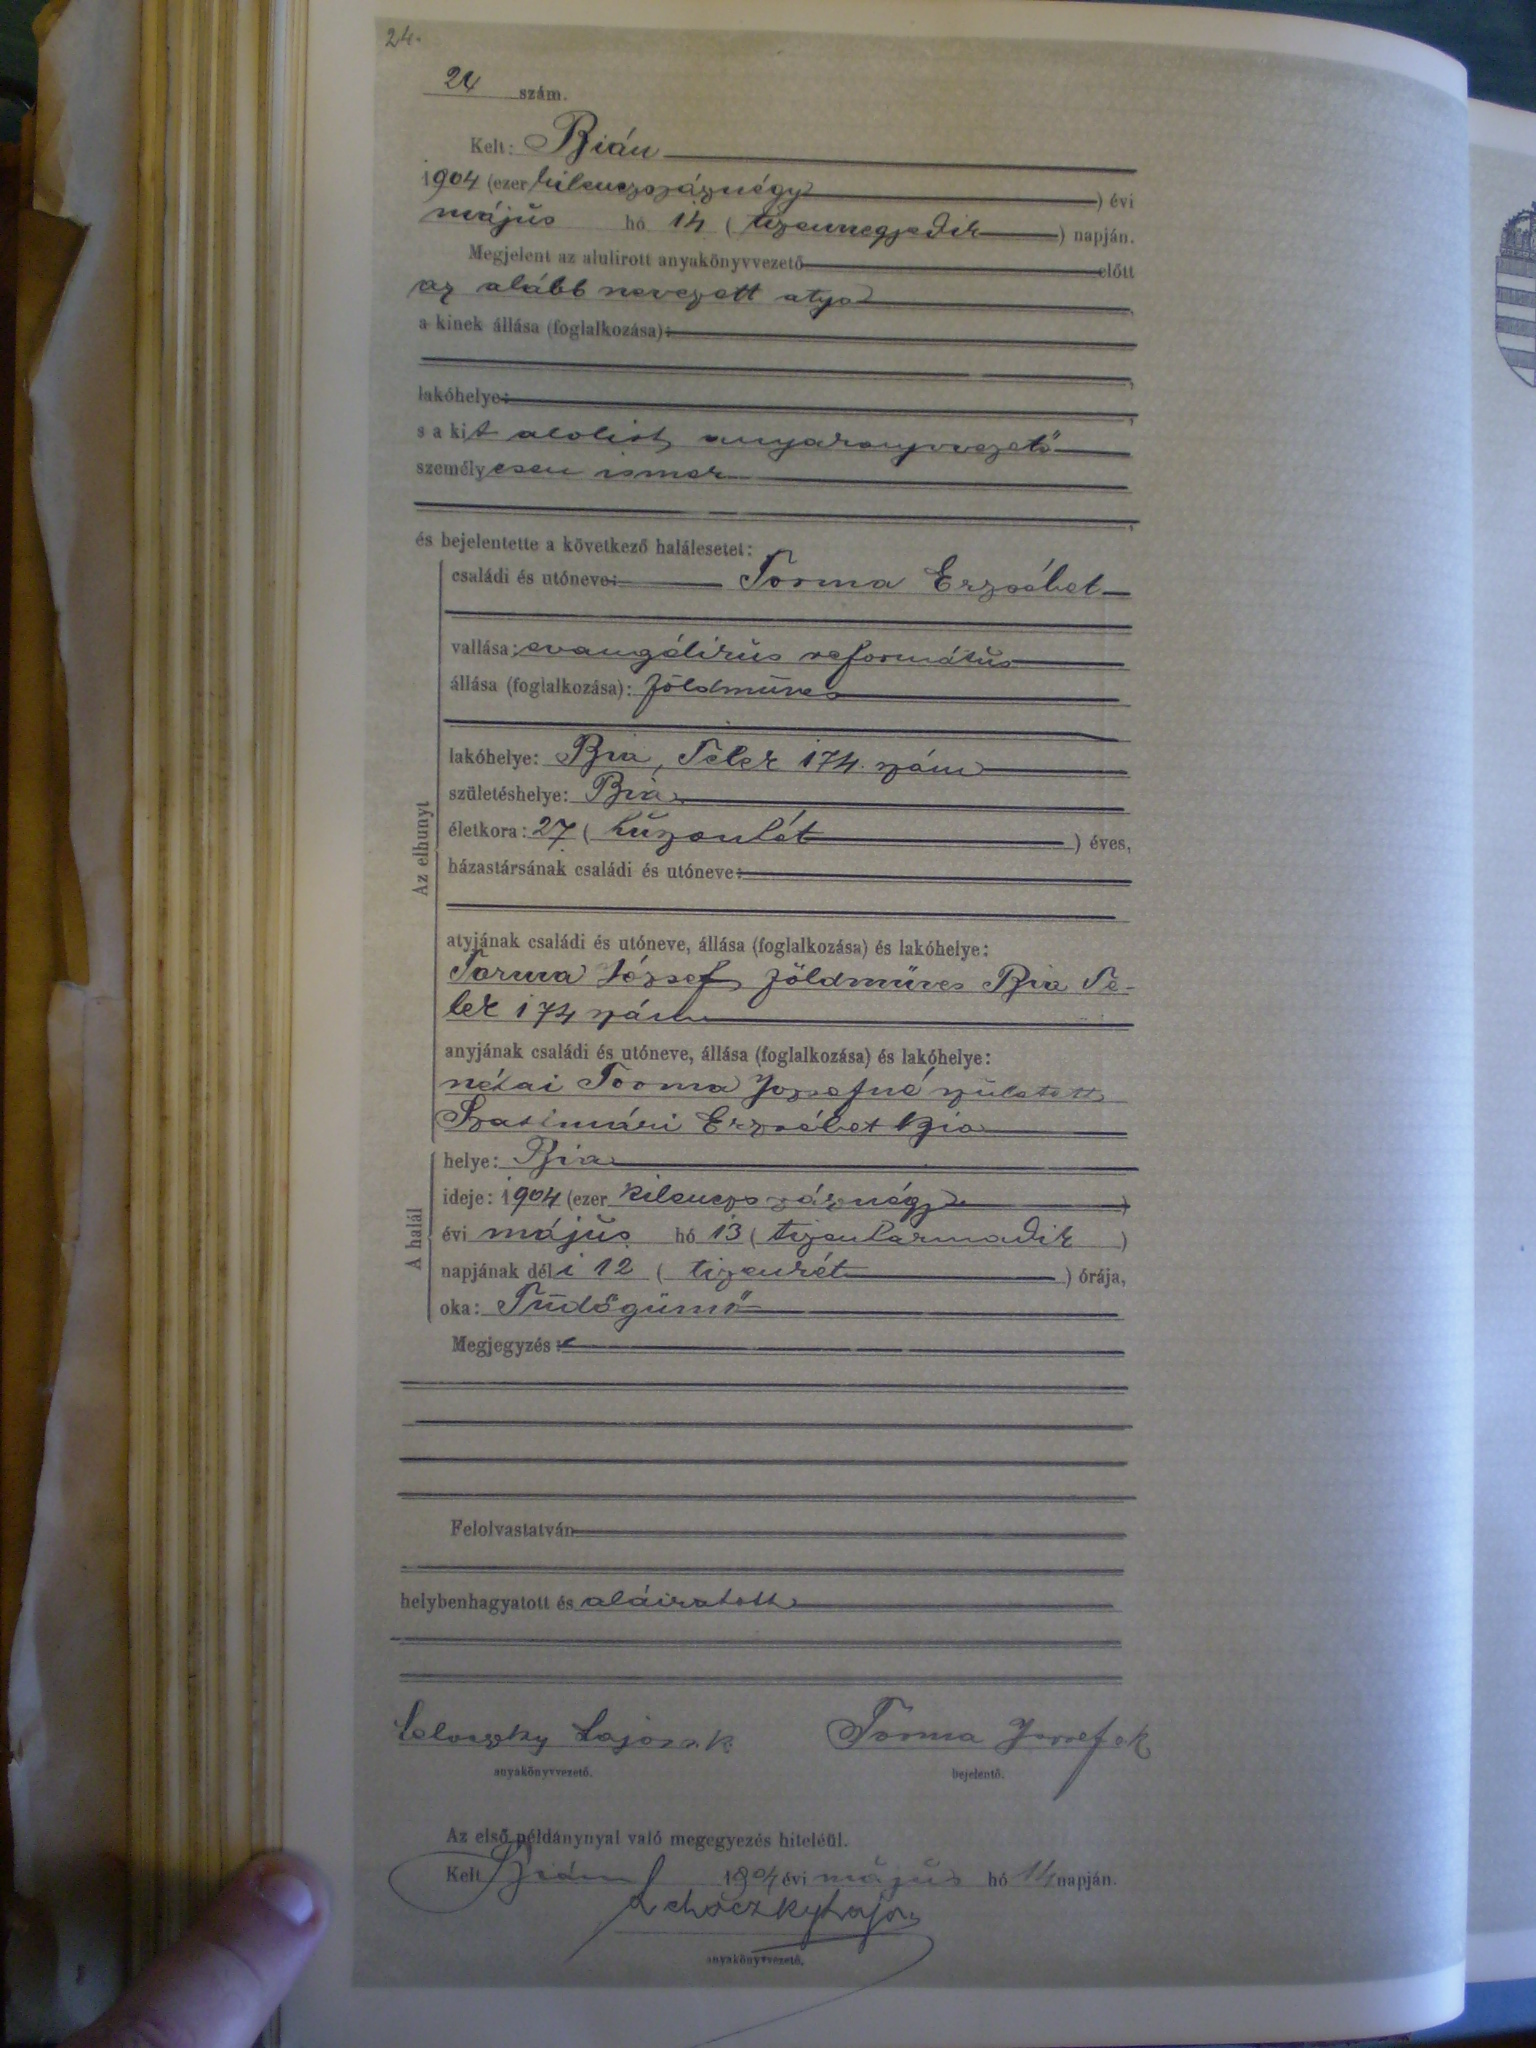 24.
24 szám.
Kelt: Bián
1904 (ezer kilenczszáznégy) évi
május hó 14 (tizennegyedik) napján.
Megjelent az alulirott anyakönyvvezető előtt
az alább nevezett atya
a kinek állása (foglalkozása):
lakóhelye:
s a kit alolirt anyakönyvvezető
személyesen ismer
és bejelentette a következő halálesetet:
Az elhunyt
családi és utóneve: Torma Erzsébet
vallása: evangélikus református
állása (foglalkozása): földműves
lakóhelye: Bia, Telek 174. szám
születéshelye: Bia
életkora: 27 (huszonhét) éves,
házastársának családi és utóneve:
atyjának családi és utóneve, állása (foglalkozása) és lakóhelye:
Torma József földműves Bia Te-
lek 174 szám
anyjának családi és utóneve, állása (foglalkozása) és lakóhelye:
néhai Torma Józsefné született
Szatmári Erzsébet Bia
A halál
helye: Bia
ideje: 1904 (ezer kilenczszáznégy)
évi május hó 13 (tizenharmadik)
napjának déli 12 (tizenkét) órája,
oka: Tüdőgümő
Megjegyzés:
Felolvastatván
helybenhagyatott és aláiratott
Lajos s.k. Torma József s.k.
anyakönyvvezető. bejelentő.
Az első példánynyal való megegyezés hiteléül.
Kelt Bián 1904 évi május hó 14 napján.
Lajos
anyakönyvvezető.